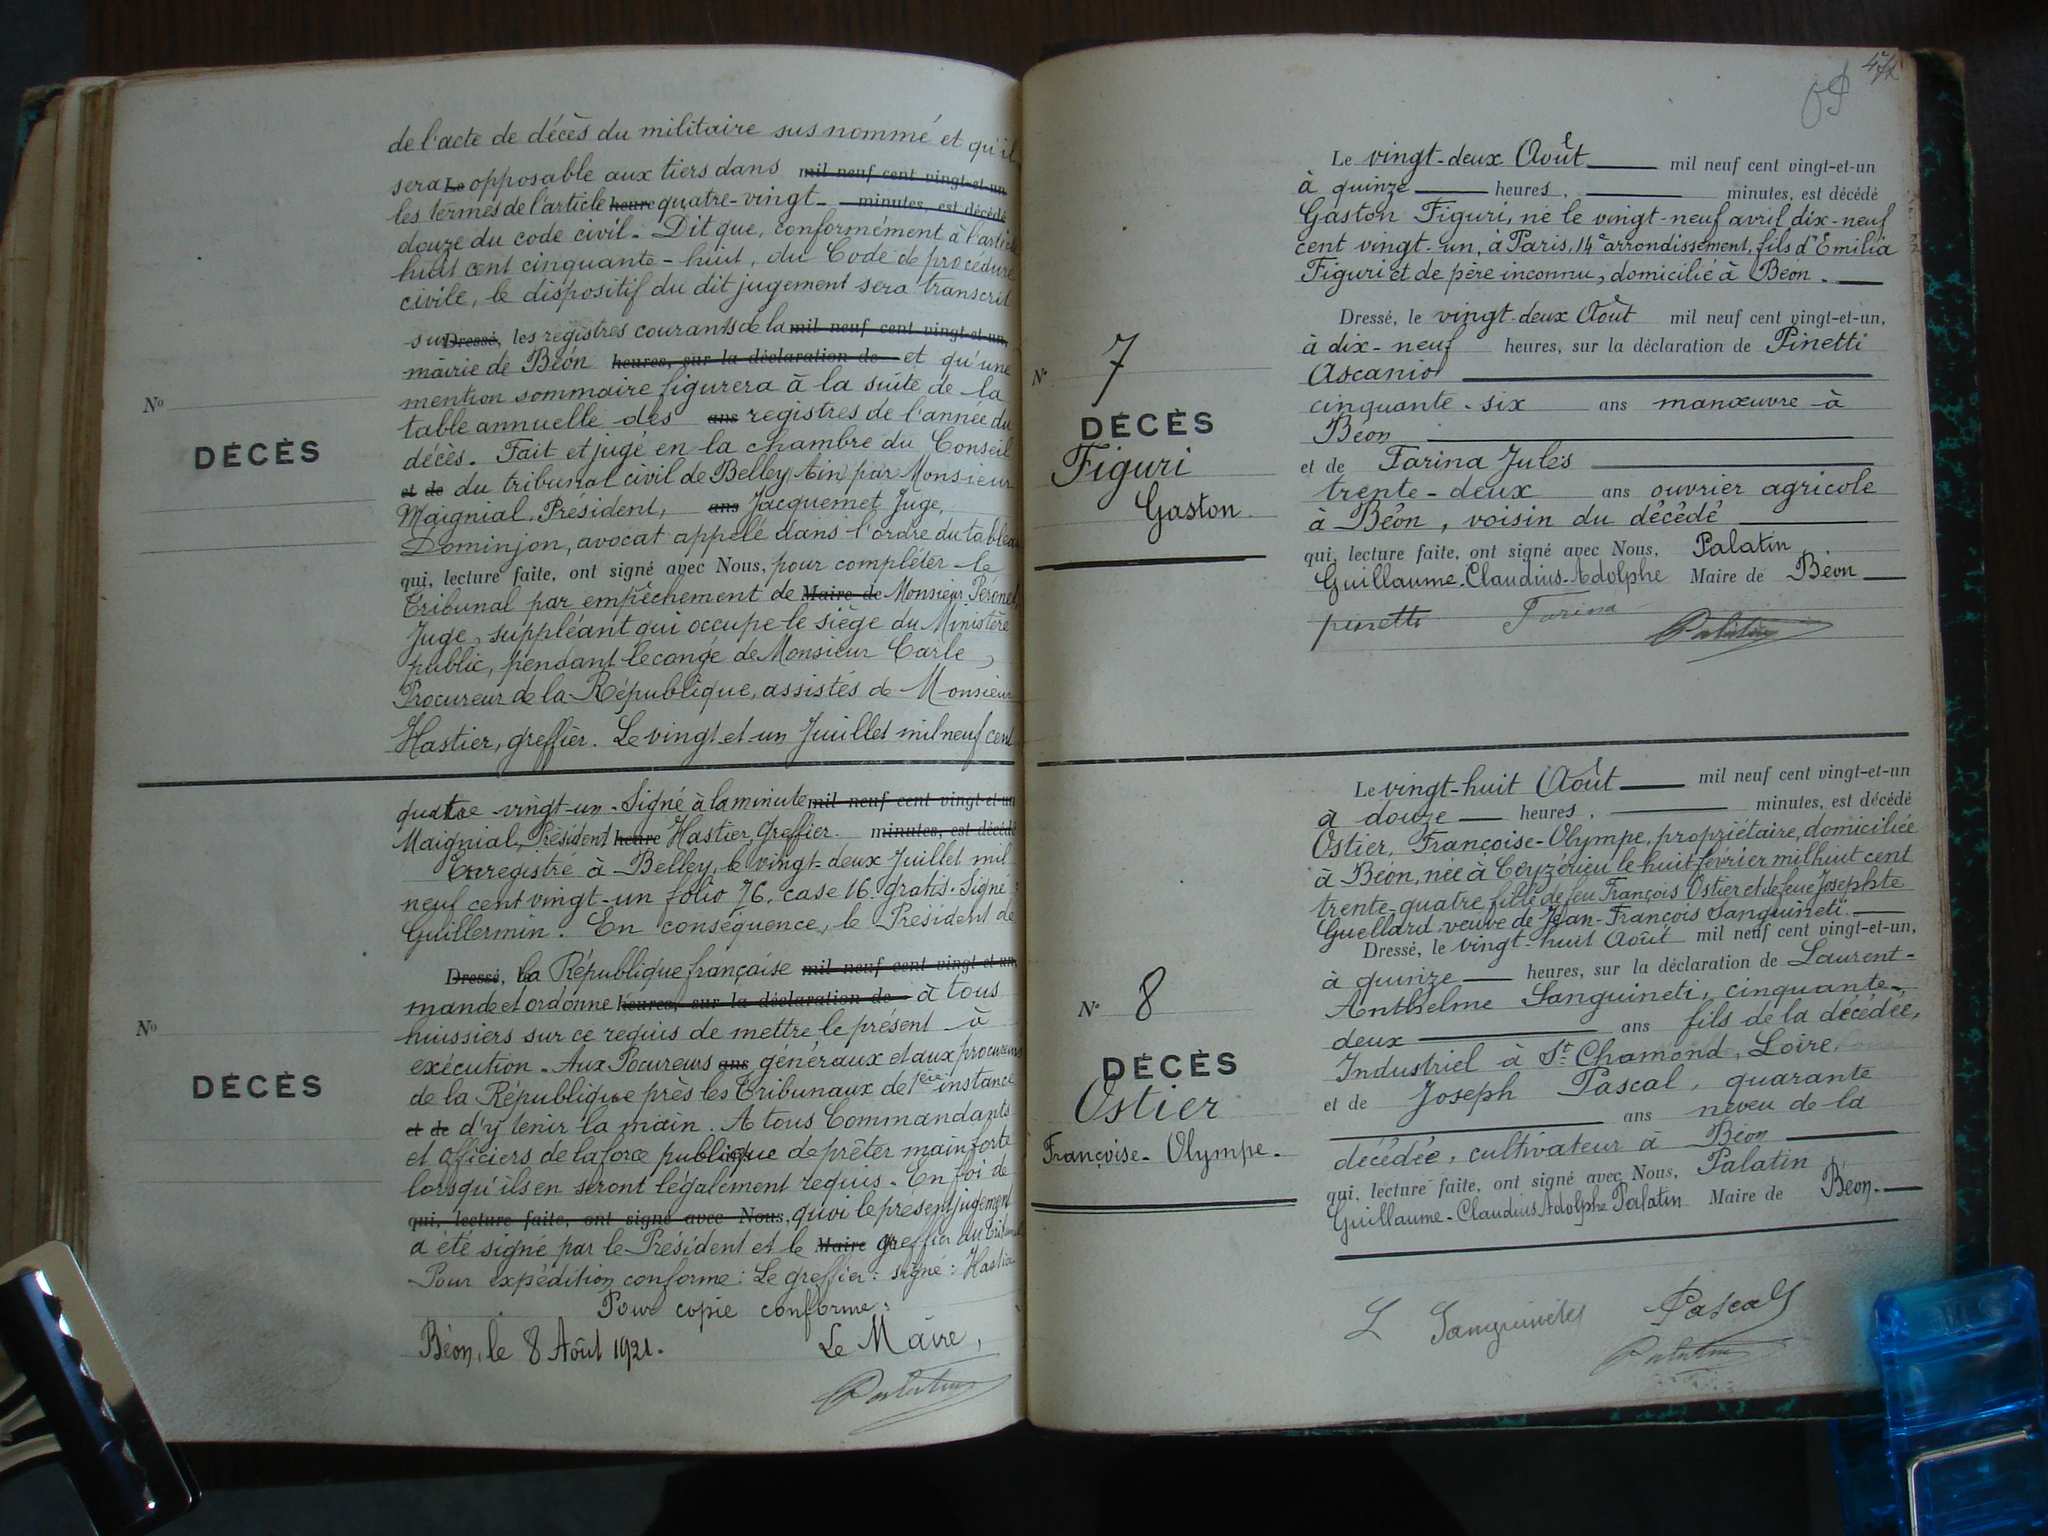 de l'acte de décès du militaire sus nommé et qu'il
sera Le opposable aux tiers dans mil neuf cent vingt-et-un
les termes de l'article heure quatre-vingt- minutes, est décédé
douze du code civil. Dit que, conformément à l'article
huit cent cinquante-huit, du Code de procédure
civile, le dispositif du dit jugement sera transcrit
sur Dressé, les registres courants de la mil neuf cent vingt-et-un,
mairie de Béon heures, sur la déclaration de et qu'une
mention sommaire figurera à la suite de la
table annuelle des ans registres de l'année du
décès. Fait et jugé en la chambre du Conseil
et de du tribunal civil de Belley Ain par Monsieur
Maignial, Président, ans Jacquemet Juge,
Dominjon, avocat appelé dans l'ordre du tableau
qui, lecture faite, ont signé avec Nous, pour compléter le
Tribunal par empêchement de Maire de Monsieur Péronel,
Juge, suppléant qui occupe le siège du Ministère
public, pendant le congé de Monsieur Carle,
Procureur de la République, assistés de Monsieur
Hastier, greffier. Le vingt et un Juillet mil neuf cent
No
DÉCÈS
quatre vingt-un. Signé à la minute mil neuf cent vingt-et-un
Maignial, Président heure Hastier, Greffier. minutes, est décédé
Enregistré à Belley, le vingt-deux Juillet mil
neuf cent vingt-un folio 76, case 16. gratis. Signé:
Guillermin. En conséquence, le Président de
Dressé, la République française mil neuf cent vingt-et-un,
mande et ordonne heures, sur la déclaration de à tous
huissiers sur ce requis de mettre le présent à
exécution. Aux Pocureurs ans généraux et aux procureurs
de la République près les Tribunaux de 1ère instance
et de d'y tenir la main. A tous Commandants
et Officiers de la force publique de prêter main forte
lorsqu'ils en seront légalement requis. En foi de
qui, lecture faite, ont signé avec Nous, quoi le présent jugement
a été signé par le Président et le Maire greffier du Tribunal
Pour expédition conforme: Le greffier: signé: Hastier
Pour copie conforme:
Béon, le 8 Août 1921. Le Maire,
Palatin
No
DÉCÈS
Le vingt-deux Août mil neuf cent vingt-et-un
à quinze heures, minutes, est décédé
Gaston Figuri, né le vingt-neuf avril dix-neuf
cent vingt-un, à Paris, 14e arrondissement, fils d'Emilia
Figuri et de père inconnu, domicilié à Béon.
Dressé, le vingt-deux Août mil neuf cent vingt-et-un,
à dix-neuf heures, sur la déclaration de Pinetti
Ascanio
cinquante-six ans manœuvre à
Béon
et de Farina Jules
trente-deux ans ouvrier agricole
à Béon, voisin du décédé
qui, lecture faite, ont signé avec Nous, Palatin
Guillaume-Claudius-Adolphe Maire de Béon
pinetti Farina Palatin
No 7
DÉCÈS
Figuri
Gaston
Le vingt-huit Août mil neuf cent vingt-et-un
à douze heures, minutes, est décédé
Ostier, Françoise-Olympe, propriétaire, domiciliée
à Béon, née à Ceyzérieu le huit février mil huit cent
trente-quatre fille de feu François Ostier et de feue Josephte
Guellard veuve de Jean-François Sanguineti.
Dressé, le vingt-huit Août mil neuf cent vingt-et-un,
à quinze heures, sur la déclaration de Laurent-
Anthelme Sanguineti, cinquante-
deux ans fils de la décédée,
Industriel à St Chamond, Loire,
et de Joseph Pascal, quarante
ans neveu de la
décédée, cultivateur à Béon
qui, lecture faite, ont signé avec Nous, Palatin
Guillaume-Claudius Adolphe Palatin Maire de Béon.
L Sanguineti Pascal
Palatin
No 8
DÉCÈS
Ostier
Françoise-Olympe.